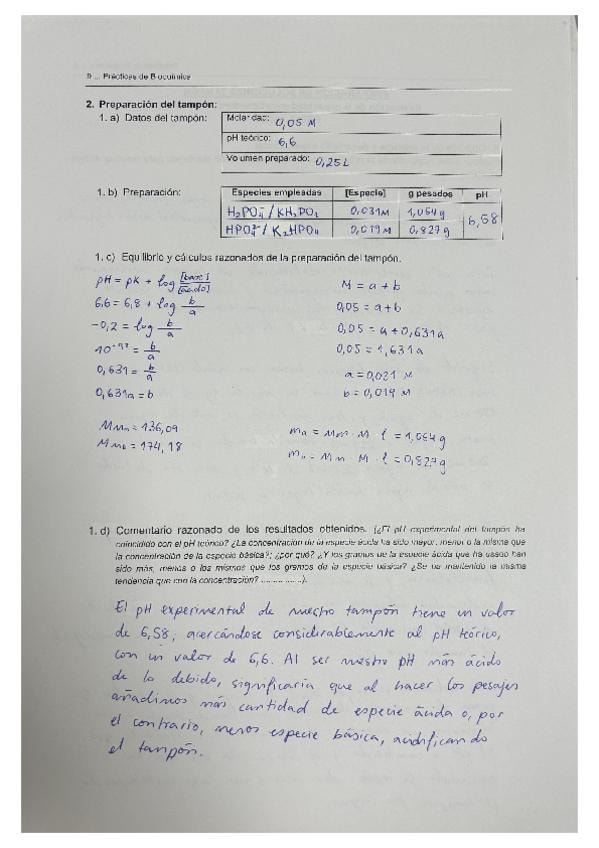 9 ... Prácticas de Bioquímica
2. Preparación del tampón:
1. a) Datos del tampón:
Molaridad: 0,05 M
pH teórico: 6,6
Volumen preparado: 0,25 L
1. b) Preparación:
Especies empleadas [Especie] g pesados pH
H2PO4⁻ / KH2PO4 0,031M 1,054g 6,58
HPO4²⁻ / K2HPO4 0,019M 0,827g
1. c) Equilibrio y cálculos razonados de la preparación del tampón.
pH = pK + log [base]/[ácido]
6,6 = 6,8 + log b/a
-0,2 = log b/a
10^-0,2 = b/a
0,631 = b/a
0,631a = b
M = a + b
0,05 = a + b
0,05 = a + 0,631a
0,05 = 1,631a
a = 0,031 M
b = 0,019 M
= 136,09
= 174,18
= Mm · M · l = 1,054g
= Mm · M · l = 0,827g
1. d) Comentario razonado de los resultados obtenidos. (¿El pH experimental del tampón ha
coincidido con el pH teórico? ¿La concentración de la especie ácida ha sido mayor, menor o la misma que
la concentración de la especie básica?; ¿por qué? ¿Y los gramos de la especie ácida que ha usado han
sido más, menos o los mismos que los gramos de la especie básica? ¿Se ha mantenido la misma
tendencia que con la concentración? ................).
El pH experimental de nuestro tampón tiene un valor
de 6,58, acercándose considerablemente al pH teórico,
con un valor de 6,6. Al ser nuestro pH más ácido
de lo debido, significaría que al hacer los pesajes
añadimos más cantidad de especie ácida o, por
el contrario, menos especie básica, acidificando
el tampón.